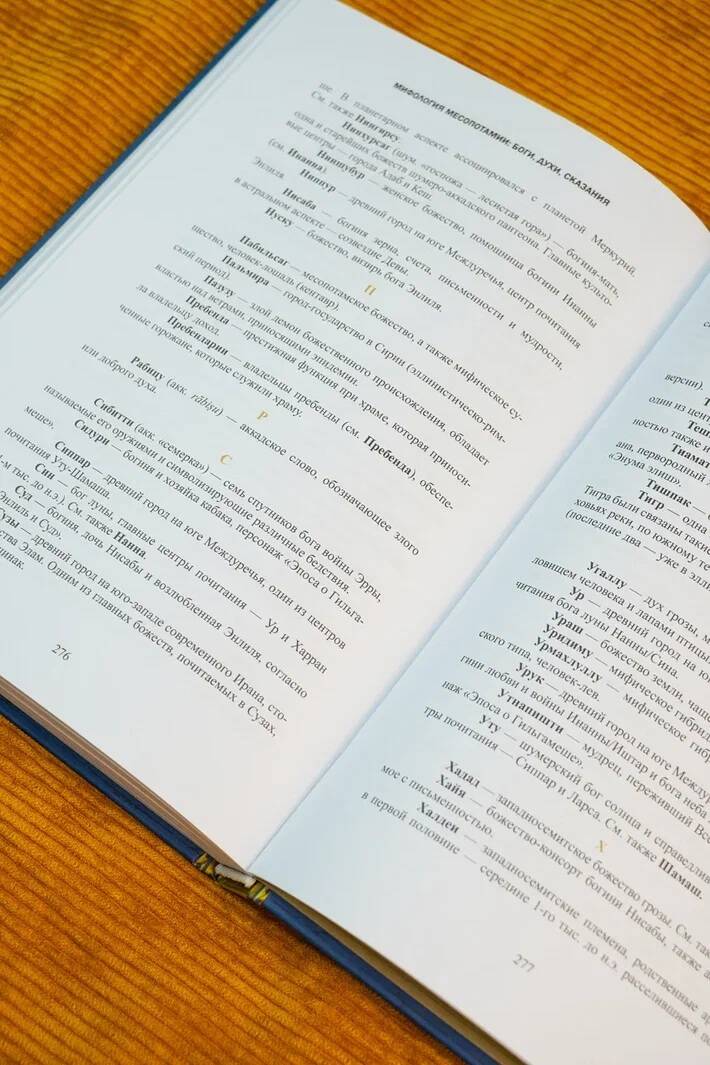 МИФОЛОГИЯ МЕСОПОТАМИИ: БОГИ, ДУХИ, СКАЗАНИЯ
ше. В планетарном аспекте ассоциировался с планетой Меркурий.
См. также Нингирсу.
Нинхурсаг (шум. «госпожа — лесистая гора») — богиня-мать,
одна и старейших божеств шумеро-аккадского пантеона. Главные культо-
вые центры — города Адаб и Кеш.
Ниншубур — женское божество, помощница богини Инанны
(см. Инанна).
Ниппур — древний город на юге Междуречья, центр почитания
Энлиля.
Нисаба — богиня зерна, счета, письменности и мудрости,
в астральном аспекте — созвездие Девы.
Нуску — божество, визирь бога Энлиля.
П
Пабильсаг — месопотамское божество, а также мифическое су-
щество, человек-лошадь (кентавр).
Пальмира — город-государство в Сирии (эллинистическо-рим-
ский период).
Пазузу — злой демон божественного происхождения, обладает
властью над ветрами, приносящими эпидемии.
Пребенда — престижная функция при храме, которая приноси-
ла владельцу доход.
Пребендарии — владельцы пребенды (см. Пребенда), обеспе-
ченные горожане, которые служили храму.
Р
Рабицу (акк. rābiṣu) — аккадское слово, обозначающее злого
или доброго духа.
С
Сибитти (акк. «семерка») — семь спутников бога войны Эрры,
называемые его оружиями и символизирующие различные бедствия.
Сидури — богиня и хозяйка кабака, персонаж «Эпоса о Гильга-
меше».
Сиппар — древний город на юге Междуречья, один из центров
почитания Уту-Шамаша.
Син — бог луны, главные центры почитания — Ур и Харран
1-м тыс. до н.э.). См. также Нанна.
Суд — богиня, дочь Нисабы и возлюбленная Энлиля, согласно
Энлиль и Суд».
узы — древний город на юго-западе современного Ирана, сто-
ства Элам. Одним из главных божеств, почитаемых в Сузах,
инак.
276
версии).
один из цен
Теш
ностью также и
Тиамат
ана, первородный
«Энума элиш».
Тишпак —
Тигр — одна
Тигра были связаны такие
ховьях реки, по южному те
(последние два — уже в элл
Угаллу — дух грозы, м
ловищем человека и лапами птицы.
Ур — древний город на ю
читания бога луны Нанны/Сина.
Ураш — божество земли, чаще
Уридиму — мифическое гибрид
Урмахлуллу — мифическое гибр
ского типа, человек-лев.
Урук — древний город на юге Междур
гини любви и войны Инанны/Иштар и бога неба
Утнапишти — мудрец, переживший Все
наж «Эпоса о Гильгамеше».
Уту — шумерский бог солнца и справедлив
тры почитания — Сиппар и Ларса. См. также Шамаш.
Х
Хадад — западносемитское божество грозы. См. так
Хайя — божество-консорт богини Нисабы, также а
мое с письменностью.
Халдеи — западносемитские племена, родственные ар
в первой половине — середине 1-го тыс. до н.э. расселившиеся по
277